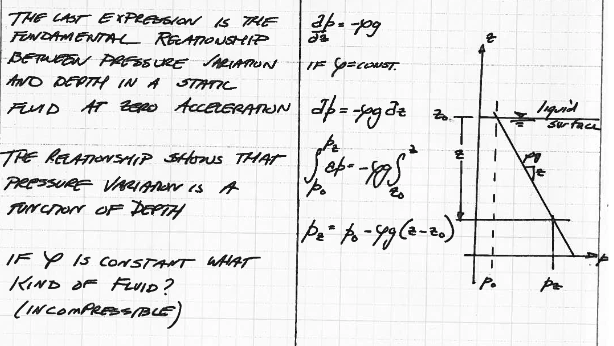 THE LAST EXPRESSION IS THE
FUNDAMENTAL RELATIONSHIP
BETWEEN PRESSURE VARIATION
AND DEPTH IN A STATIC
FLUID AT ZERO ACCELERATION
THE RELATIONSHIP SHOWS THAT
PRESSURE VARIATION IS A
FUNCTION OF DEPTH
IF ρ IS CONSTANT WHAT
KIND OF FLUID?
(INCOMPRESSIBLE)
dp/dz = -ρg
IF ρ=CONST.
dp = -ρg dz
∫_{p₀}^{p_z} dp = -ρg ∫_{z₀}^{z}
p_z = p₀ - ρg(z-z₀)
z
z₀
liquid
surface
z
ρg
z
p
p₀
p_z